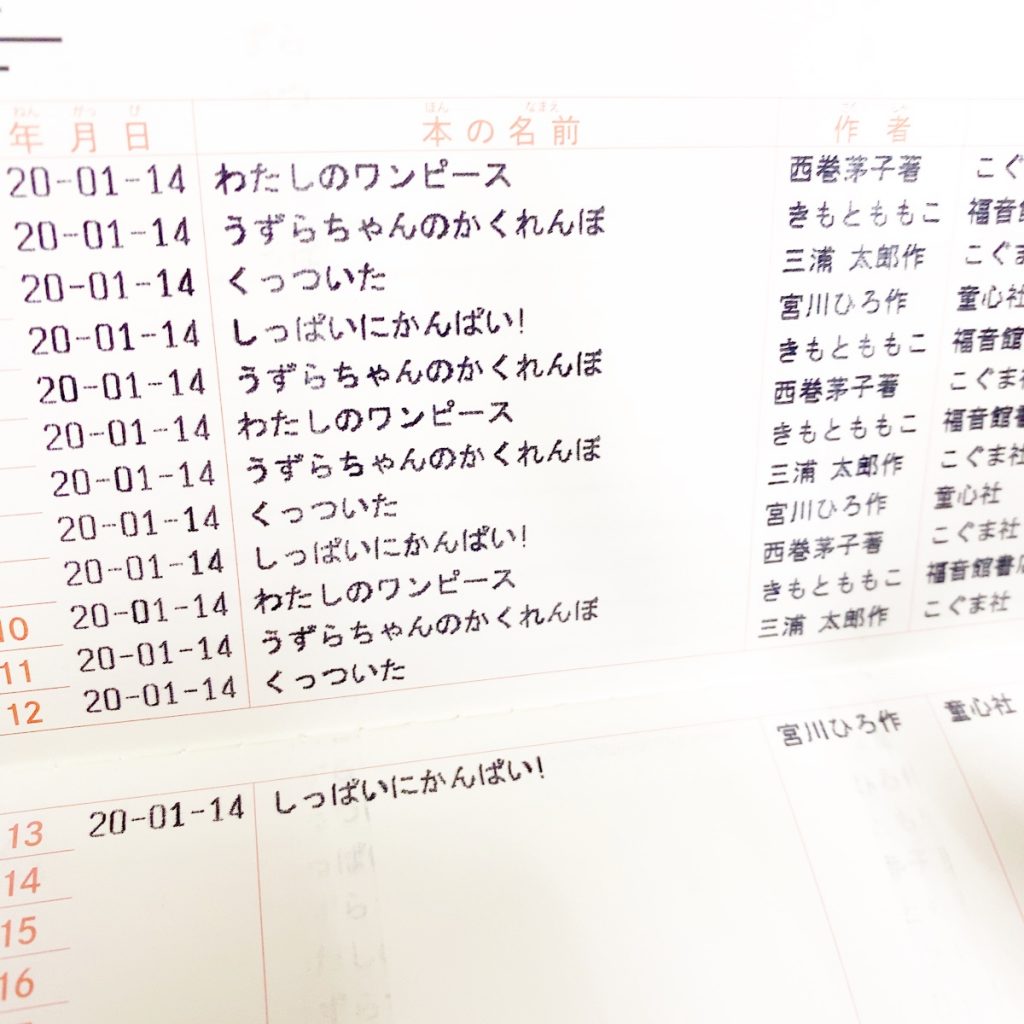 ねん がっ び ほん なまえ
年 月 日 本の名前 作者
20-01-14 わたしのワンピース 西巻茅子著 こぐ
20-01-14 うずらちゃんのかくれんぼ きもとももこ 福音館
20-01-14 くっついた 三浦 太郎作 こぐま
20-01-14 しっぱいにかんぱい! 宮川ひろ作 童心社
20-01-14 うずらちゃんのかくれんぼ きもとももこ 福音館
20-01-14 わたしのワンピース 西巻茅子著 こぐま社
20-01-14 うずらちゃんのかくれんぼ きもとももこ 福音館書
20-01-14 くっついた 三浦 太郎作 こぐま社
20-01-14 しっぱいにかんぱい! 宮川ひろ作 童心社
10 20-01-14 わたしのワンピース 西巻茅子著 こぐま社
11 20-01-14 うずらちゃんのかくれんぼ きもとももこ 福音館書店
12 20-01-14 くっついた 三浦 太郎作 こぐま社
13 20-01-14 しっぱいにかんぱい! 宮川ひろ作 童心社
14
15
16